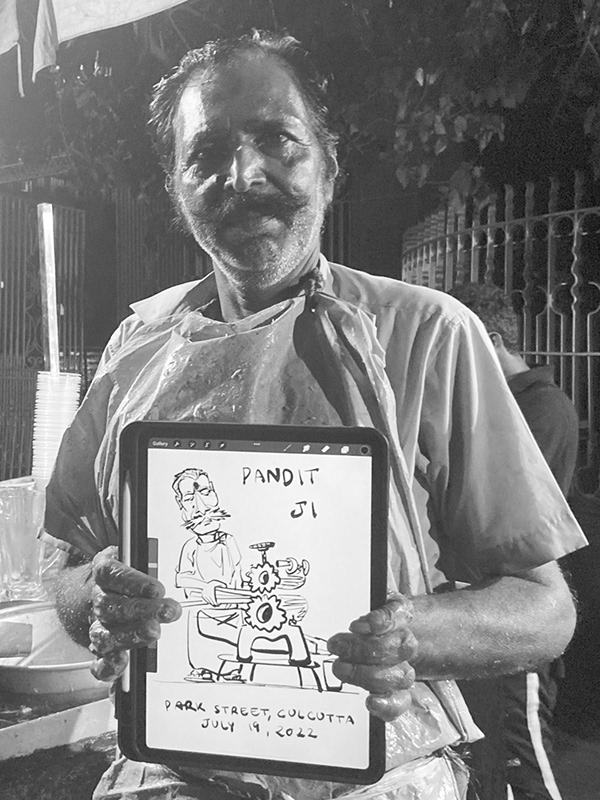 Gallery
PANDIT
JI
PARK STREET, CULCUTTA
JULY 19, 2022